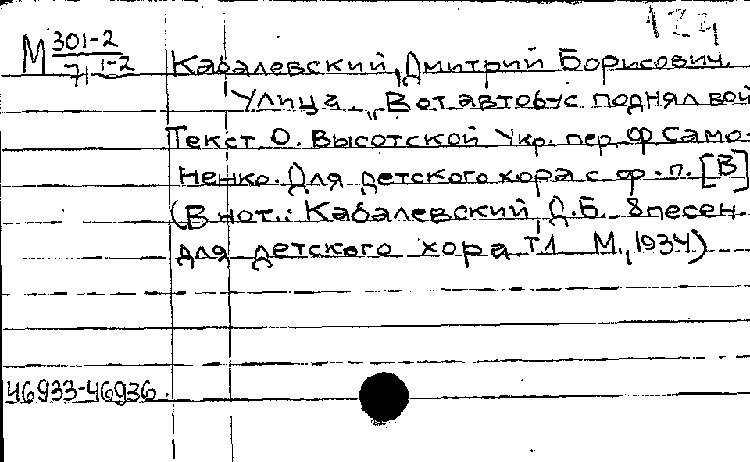 124
М 301-2
71 1-2
Кабалевский, Дмитрий Борисович.
Улица. „Вот автобус поднял вой
Текст О. Высотской Укр. пер. Ф Само-
ненко. Для детского хора с ф-п. [В]
(В нот.: Кабалевский, Д.Б. 8 песен
для детского хора. Т1 М., 1934)
46933-46936.